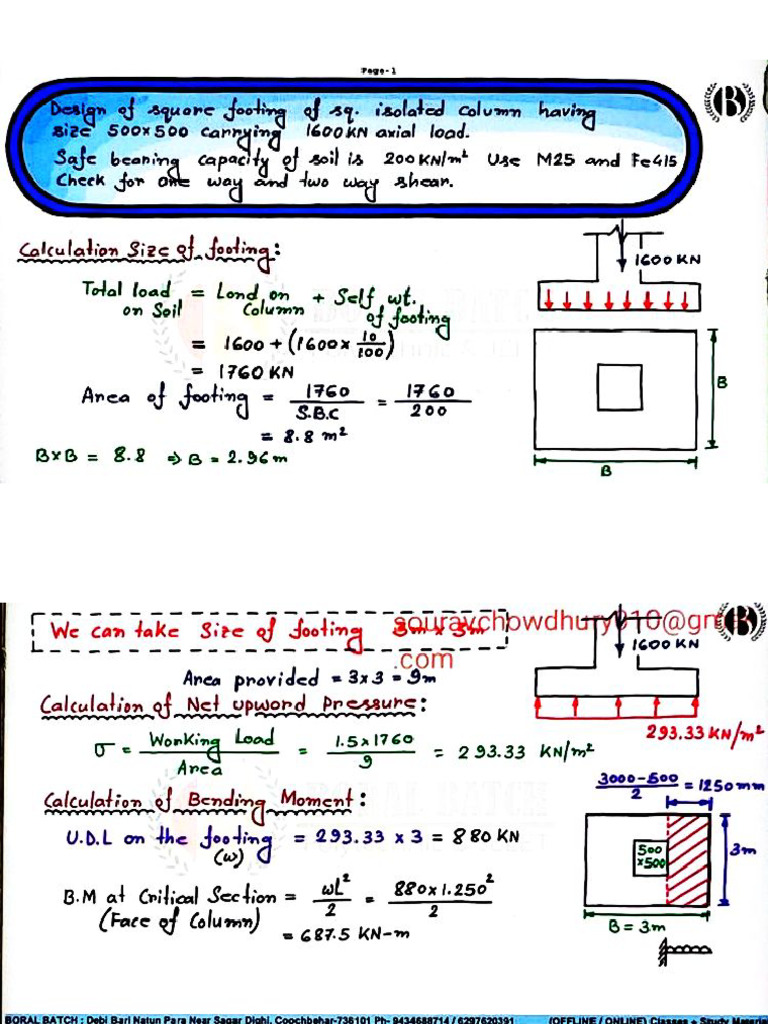 Page-1
Design of square footing of sq. isolated column having
size 500x500 carrying 1600KN axial load.
Safe bearing capacity of soil is 200KN/m² Use M25 and Fe415
Check for one way and two way shear.
B
Calculation Size of footing:
1600KN
Total load = Load on + Self wt.
on Soil Column of footing
= 1600 + (1600 x 10/100)
= 1760 KN
Area of footing = 1760/S.B.C = 1760/200
= 8.8 m²
BxB = 8.8 ⇒ B = 2.96m
B
B
We can take Size of footing 3m x 3m
souravchowdhury810@gma
.com
B
1600 KN
Area provided = 3x3 = 9m
Calculation of Net upword Pressure:
σ = Working Load/Area = 1.5x1760/9 = 293.33 KN/m²
293.33 KN/m²
3000-500/2 = 1250mm
Calculation of Bending Moment:
U.D.L on the footing = 293.33 x 3 = 880 KN
(w)
500
x500
3m
B.M at Critical Section = wL²/2 = 880x1.250²/2
(Face of Column)
= 687.5 KN-m
B = 3m
BORAL BATCH : Debi Bari Natun Para Near Sagar Dighi, Coochbehar-736101 Ph- 9434688714 / 6297620391 (OFFLINE / ONLINE) Classes + Study Materia